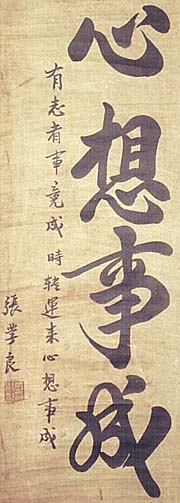 心想事成
有志者事竟成 時转運来心想事成
張学良